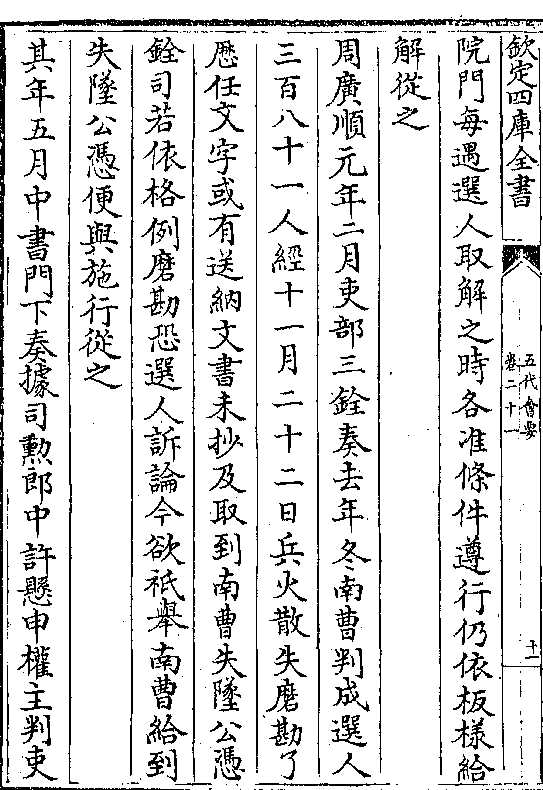 欽定四庫全書
五代會要
卷二十一
十一
院門每遇選人取解之時各准條件遵行仍依板樣給
解從之
周廣順元年二月吏部三銓奏去年冬南曹判成選人
三百八十一人經十一月二十二日兵火散失磨勘了
歷任文字或有送納文書未抄及取到南曹失墜公憑
銓司若依格例磨勘恐選人訴論今欲祇舉南曹給到
失墜公憑便與施行從之
其年五月中書門下奏據司勲郎中許懸申權主判吏